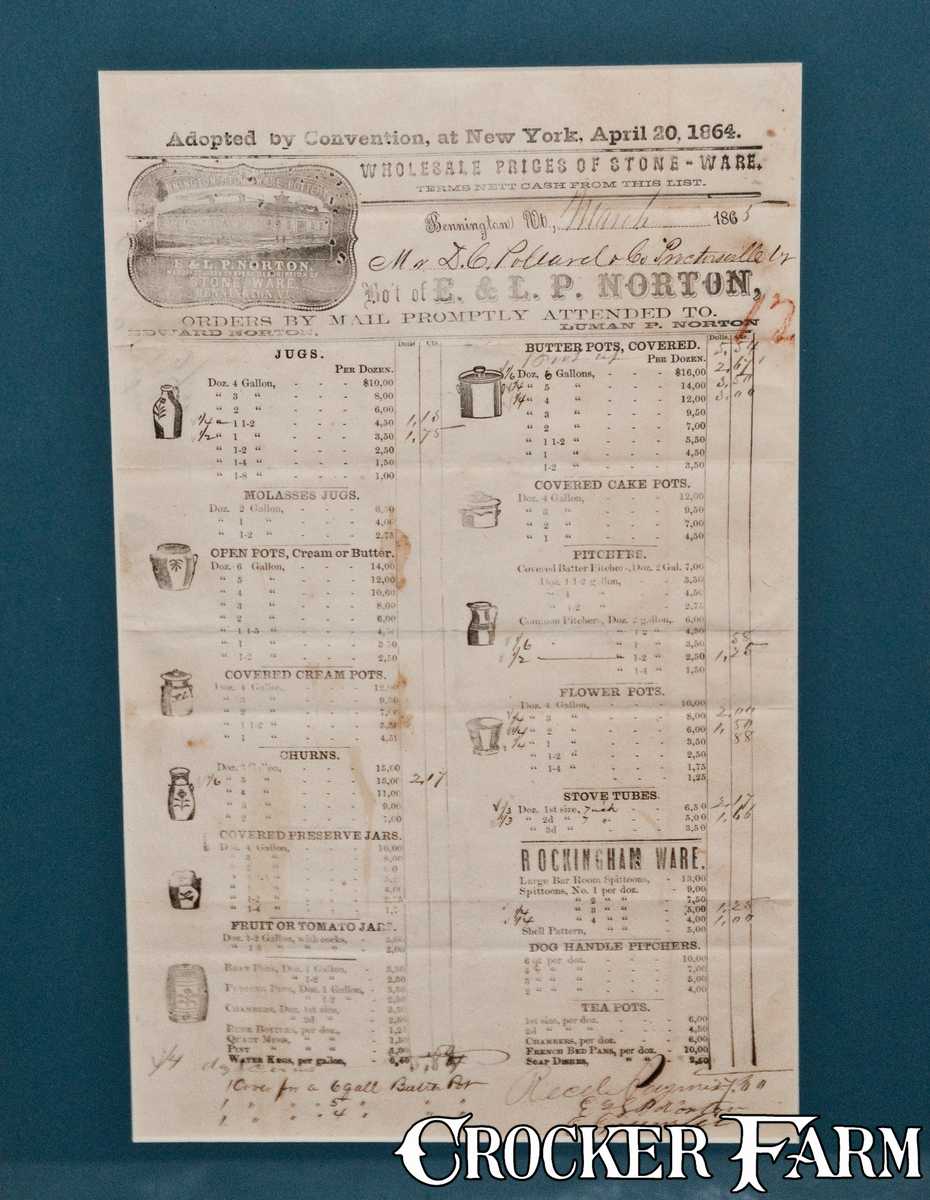 Adopted by Convention, at New York, April 20, 1864.
WHOLESALE PRICES OF STONE-WARE.
TERMS NETT CASH FROM THIS LIST.
Bennington Vt., March 1865
E. & L. P. NORTON.
STONE WARE
Mr D. C. Pollard & Co Proctorsville Vt
Bo't of E. & L. P. NORTON,
ORDERS BY MAIL PROMPTLY ATTENDED TO.
EDWARD NORTON. LUMAN P. NORTON
12
Dolls. Cts.
JUGS.
PER DOZEN.
Doz. 4 Gallon, - - - $10,00
" 3 " - - - 8,00
" 2 " - - - 6,00
1/4 " 1 1-2 - - - 4,50 1,13
1/2 " 1 " - - - 3,50 1,75
" 1-2 " - - - 2,50
" 1-4 " - - - 1,50
" 1-8 " - - - 1,00
MOLASSES JUGS.
Doz. 2 Gallon, - - -
" 1 " - - - 4,00
" 1-2 " - - - 2,75
OPEN POTS, Cream or Butter.
Doz. 6 Gallon, - - - 14,00
" 5 " - - - 12,00
" 4 " - - - 10,00
" 3 " - - - 8,00
" 2 " - - - 6,00
" 1 1-2 " - - -
" 1 " - - -
" 1-2 " - - - 2,50
COVERED CREAM POTS.
Doz. 4 Gallon, - - -
" 3 " - - - 9,50
" 2 " - - - 7,00
" 1 1-2 " - - -
" 1 " - - -
CHURNS.
Gallon, - - - 15,00
1/6 " 5 " - - - 13,00 2,17
" 4 " - - - 11,00
" 3 " - - - 9,00
" 2 " - - - 7,00
COVERED PRESERVE JARS.
Doz. 4 Gallon, - - - 10,00
8,00
FRUIT OR TOMATO JARS.
Doz. 1-2 Gallon, with corks, -
BEAN POTS, Doz. 1 Gallon, -
" " 1-2 "
PUDDING PANS, Doz. 1 Gallon, -
" " 1-2 "
CHAMBERS, Doz. 1st size, -
" " 2d "
BEER BOTTLES, per doz., -
QUART MUGS, " -
PINT " " -
WATER KEGS, per gallon, -
1/4
1 Cover for a 6 gall Butter Pot
1 " " " 5 " " "
1 " " " 4 " " "
Dolls. Cts.
BUTTER POTS, COVERED.
PER DOZEN.
1/6 Doz. 6 Gallons, - - $16,00 2,67
1/4 " 5 " - - - 14,00 3,50
1/4 " 4 " - - - 12,00 3,00
" 3 " - - - 9,50
" 2 " - - - 7,00
" 1 1-2 " - - - 5,50
" 1 " - - - 4,50
1-2 " - - - 3,50
COVERED CAKE POTS.
Doz. 4 Gallon, - - - 12,00
" 3 " - - - 9,50
" 2 " - - - 7,00
" 1 " - - - 4,50
PITCHERS.
Covered Batter Pitchers, Doz. 2 Gal. 7,00
Doz. 1 1-2 gallon, - 5,50
" 1 " - 4,50
" 1-2 " - 2,75
Common Pitchers, Doz. 2 gallon, - 6,00
" 1 1-2 " 4,50
1/6 " 1 " 3,50 58
1/2 " 1-2 " 2,50 1,25
" 1-4 " 1,50
FLOWER POTS.
Doz. 4 Gallon, - - - 10,00
1/4 " 3 " - - - 8,00 2,00
1/4 " 2 " - - - 6,00 1,50
1/4 " 1 " - - - 3,50 88
" 1-2 " - - - 2,50
" 1-4 " - - - 1,75
- - - 1,25
STOVE TUBES.
1/3 Doz. 1st size, 7 inch - - 6,50 2,17
1/3 " 2d " - - 5,00 1,66
" 3d " - - 3,50
ROCKINGHAM WARE.
Large Bar Room Spittoons, - 13,00
Spittoons, No. 1 per doz. - 9,00
" " 2 " " - 7,50
1/4 " " 3 " " - 5,00 1,25
1/4 " " 4 " " - 4,00 1,00
Shell Pattern, " " - 5,00
DOG HANDLE PITCHERS.
6 qt per doz. - - - 10,00
" " - - - 7,00
" " - - - 5,00
" " - - - 4,00
TEA POTS.
1st size, per doz. - - 6,00
2d " " " - - 4,50
CHAMBERS, per doz. - - 6,00
FRENCH BED PANS, per doz. - 10,00
SOAP DISHES, " " - 2,50
Recd Payment
E & L P Norton
CROCKER FARM